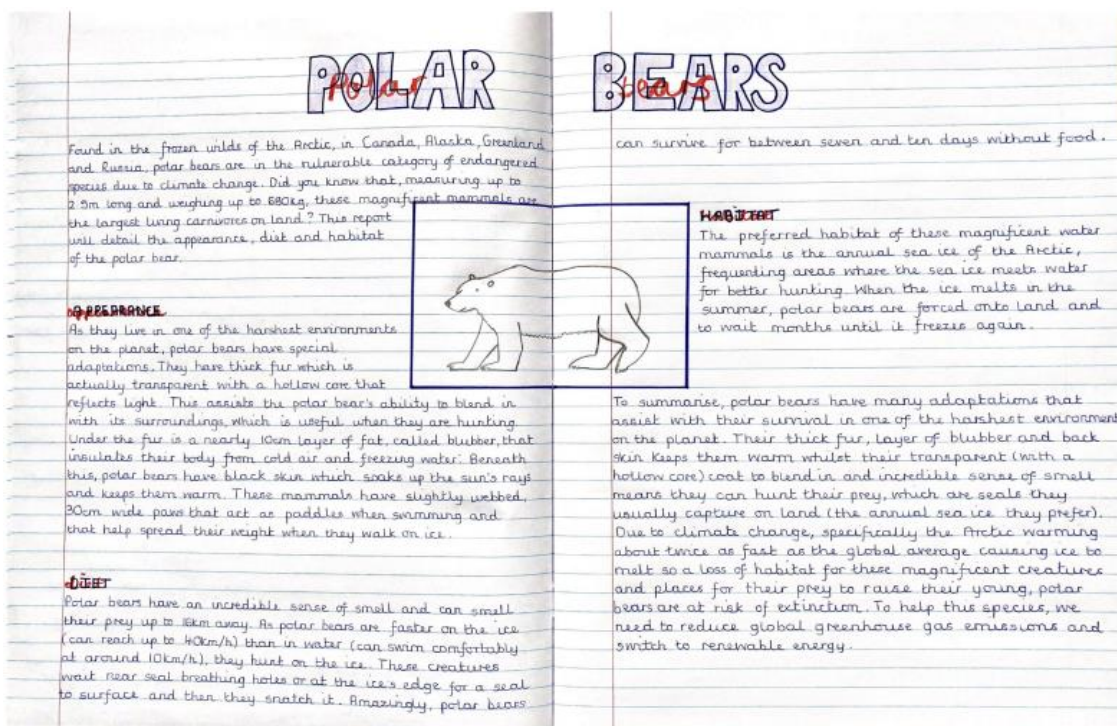 POLAR BEARS
Polar bears
Found in the frozen wilds of the Arctic, in Canada, Alaska, Greenland
and Russia, polar bears are in the vulnerable category of endangered
species due to climate change. Did you know that, measuring up to
2.9m long and weighing up to 680kg, these magnificent mammals are
the largest living carnivores on land? This report
will detail the appearance, diet and habitat
of the polar bear.
APPEARANCE
As they live in one of the harshest environments
on the planet, polar bears have special
adaptations. They have thick fur which is
actually transparent with a hollow core that
reflects light. This assists the polar bear's ability to blend in
with its surroundings, which is useful when they are hunting.
Under the fur is a nearly 10cm layer of fat, called blubber, that
insulates their body from cold air and freezing water. Beneath
this, polar bears have black skin which soaks up the sun's rays
and keeps them warm. These mammals have slightly webbed,
30cm wide paws that act as paddles when swimming and
that help spread their weight when they walk on ice.
DIET
Polar bears have an incredible sense of smell and can smell
their prey up to 16km away. As polar bears are faster on the ice
(can reach up to 40km/h) than in water (can swim comfortably
at around 10km/h), they hunt on the ice. These creatures
wait near seal breathing holes or at the ice's edge for a seal
to surface and then they snatch it. Amazingly, polar bears
can survive for between seven and ten days without food.
HABITAT
The preferred habitat of these magnificent water
mammals is the annual sea ice of the Arctic,
frequenting areas where the sea ice meets water
for better hunting. When the ice melts in the
summer, polar bears are forced onto land and
to wait months until it freezes again.
To summarise, polar bears have many adaptations that
assist with their survival in one of the harshest environment
on the planet. Their thick fur, layer of blubber and back
skin keeps them warm whilst their transparent (with a
hollow core) coat to blend in and incredible sense of smell
means they can hunt their prey, which are seals they
usually capture on land (the annual sea ice they prefer).
Due to climate change, specifically the Arctic warming
about twice as fast as the global average causing ice to
melt so a loss of habitat for these magnificent creatures
and places for their prey to raise their young, polar
bears are at risk of extinction. To help this species, we
need to reduce global greenhouse gas emissions and
switch to renewable energy.